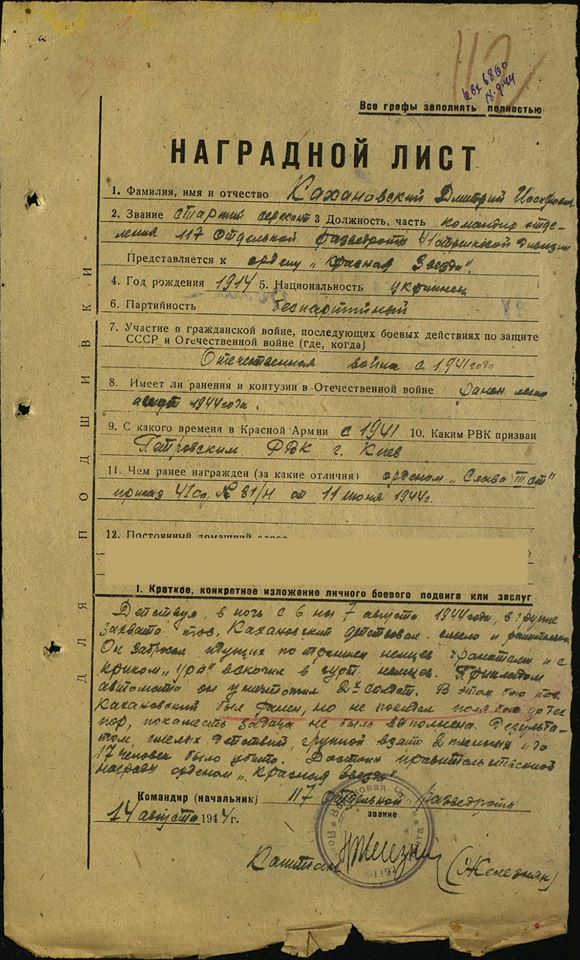 112
Вх 6860
18.9.44
Все графы заполнять полностью
НАГРАДНОЙ ЛИСТ
1. Фамилия, имя и отчество Кахановский Дмитрий
2. Звание старший сержант 3 Должность, часть командир отде-
ления 117 Отдельной разведроты 41 стрелковой дивизии
Представляется к ордену „Красная Звезда".
4. Год рождения 1914 5. Национальность украинец
6. Партийность беспартийный
7. Участие в гражданской войне, последующих боевых действиях по защите
СССР и Отечественной войне (где, когда)
Отечественная война с 1941 года
8. Имеет ли ранения и контузии в Отечественной войне Ранен легко
август 1944 года.
9. С какого времени в Красной Армии с 1941 10. Каким РВК призван
Петровским РВК г. Киев
11. Чем ранее награжден (за какие отличия) орденом „Слава III ст"
приказ 41сд № 31/Н от 11 июня 1944г.
12. Постоянный домашний адрес
I. Краткое, конкретное изложение личного боевого подвига или заслуг
Действуя, в ночь с 6 на 7 августа 1944 года, в группе
захвата тов. Кахановский действовал смело и решительно
Он забросал идущих по траншеи немцев гранатами и с
криком „ура" вскочил в немцев. Прикладом
автомата он уничтожил 2х солдат. В этом бою тов.
Кахановский был ранен, но не покидал поля боя до тех
пор, покамест задача не была выполнена. Результа-
том смелых действий, группой взято 2 пленных и до
17 человек было убито. Достоин правительственной
награды орденом „Красная звезда"
Командир (начальник) 117 отдельной разведроты
звание
14 августа 1944г.
Капитан (Железняк)
ДЛЯ ПОДШИВКИ